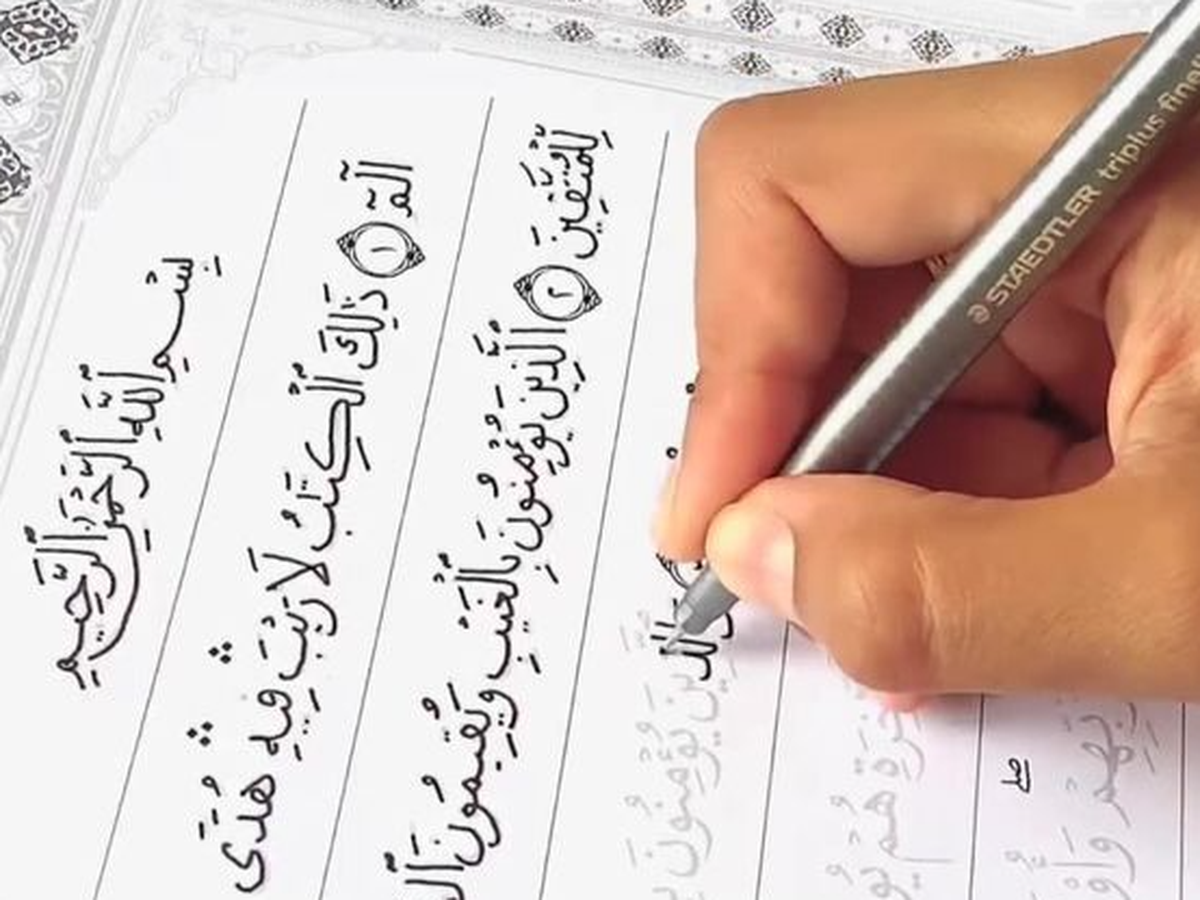 بِسْمِ ٱللَّهِ ٱلرَّحْمَٰنِ ٱلرَّحِيمِ
الٓمٓ ١ ذَٰلِكَ ٱلْكِتَٰبُ لَا رَيْبَ ۛ فِيهِ ۛ هُدًى
لِّلْمُتَّقِينَ ٢ ٱلَّذِينَ يُؤْمِنُونَ بِٱلْغَيْبِ وَيُقِيمُونَ
وَٱلَّذِينَ يُؤْمِنُونَ
هُمْ
STAEDTLER triplus